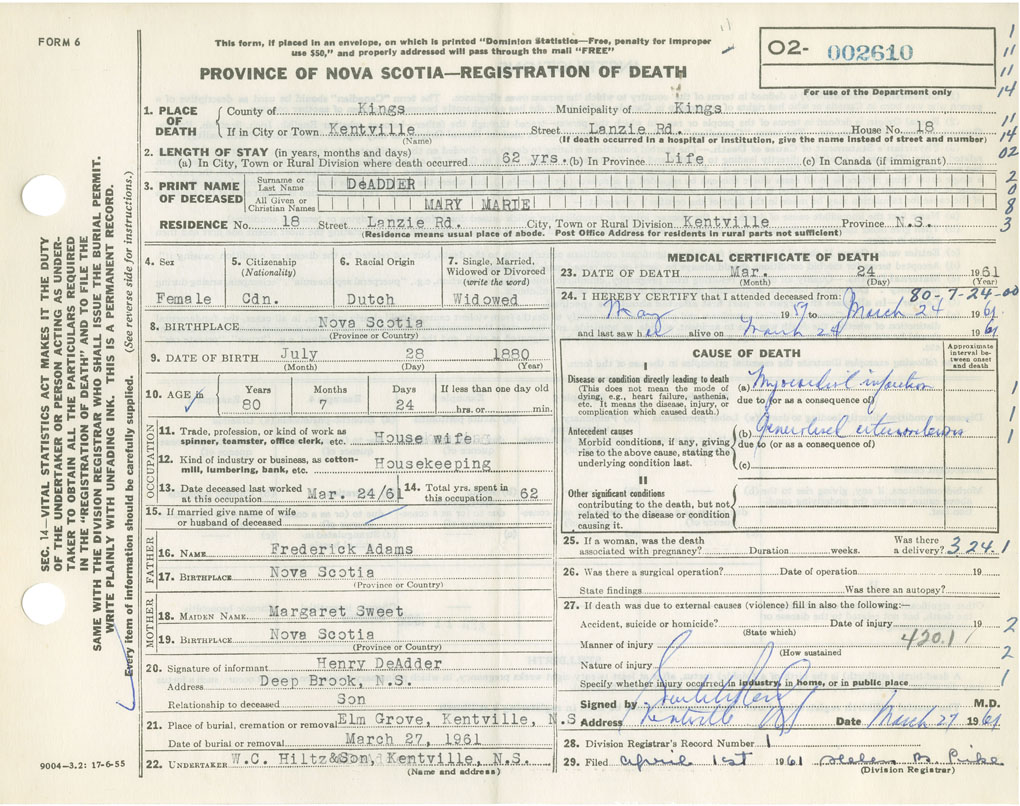 FORM 6
This form, if placed in an envelope, on which is printed "Dominion Statistics—Free, penalty for improper
use $50," and properly addressed will pass through the mail "FREE"
O2- 002610
For use of the Department only
PROVINCE OF NOVA SCOTIA—REGISTRATION OF DEATH
1. PLACE OF DEATH County of Kings Municipality of Kings
If in City or Town Kentville Street Lanzie Rd. House No. 18
(Name) (If death occurred in a hospital or institution, give the name instead of street and number)
2. LENGTH OF STAY (in years, months and days)
(a) In City, Town or Rural Division where death occurred 62 yrs. (b) In Province Life (c) In Canada (if immigrant)
3. PRINT NAME OF DECEASED Surname or Last Name DeADDER
All Given or Christian Names MARY MARIE
RESIDENCE No. 18 Street Lanzie Rd. City, Town or Rural Division Kentville Province N.S.
(Residence means usual place of abode. Post Office Address for residents in rural parts not sufficient)
SEC. 14—VITAL STATISTICS ACT MAKES IT THE DUTY
OF THE UNDERTAKER OR PERSON ACTING AS UNDER-
TAKER TO OBTAIN ALL THE PARTICULARS REQUIRED
IN THE "REGISTRATION OF DEATH" AND TO FILE THE
SAME WITH THE DIVISION REGISTRAR WHO SHALL ISSUE THE BURIAL PERMIT.
WRITE PLAINLY WITH UNFADING INK. THIS IS A PERMANENT RECORD.
Every item of information should be carefully supplied. (See reverse side for instructions.)
4. Sex 5. Citizenship (Nationality) 6. Racial Origin 7. Single, Married, Widowed or Divorced (write the word)
Female Cdn. Dutch Widowed
8. BIRTHPLACE Nova Scotia
(Province or Country)
9. DATE OF BIRTH July 28 1880
(Month) (Day) (Year)
10. AGE Years Months Days If less than one day old
80 7 24 hrs. or min.
OCCUPATION
11. Trade, profession, or kind of work as
spinner, teamster, office clerk, etc. House wife
12. Kind of industry or business, as cotton-
mill, lumbering, bank, etc. Housekeeping
13. Date deceased last worked at this occupation Mar. 24/61 14. Total yrs. spent in this occupation 62
15. If married give name of wife
or husband of deceased
FATHER
16. NAME Frederick Adams
17. BIRTHPLACE Nova Scotia
(Province or Country)
MOTHER
18. MAIDEN NAME Margaret Sweet
19. BIRTHPLACE Nova Scotia
(Province or Country)
20. Signature of informant Henry DeAdder
Address Deep Brook, N.S.
Relationship to deceased Son
21. Place of burial, cremation or removal Elm Grove, Kentville, N.S
Date of burial or removal March 27, 1961
22. UNDERTAKER W.C. Hiltz&Son, Kentville, N.S.
(Name and address)
9004—3.2: 17-6-55
MEDICAL CERTIFICATE OF DEATH
23. DATE OF DEATH Mar. 24 1961
(Month) (Day) (Year)
80-7-24-00
24. I HEREBY CERTIFY that I attended deceased from:
May 1957 to March 24 1961
and last saw h er alive on March 24 1961
CAUSE OF DEATH
Approximate interval between onset and death
I
Disease or condition directly leading to death (a) Myocardial infarction
(This does not mean the mode of
dying, e.g., heart failure, asthenia,
etc. It means the disease, injury, or
complication which caused death.)
due to (or as a consequence of)
Antecedent causes (b) Generalised arteriosclerosis
Morbid conditions, if any, giving
rise to the above cause, stating the
underlying condition last.
due to (or as a consequence of)
(c)
II
Other significant conditions
contributing to the death, but not
related to the disease or condition
causing it.
25. If a woman, was the death
associated with pregnancy? Duration weeks. Was there a delivery? 324.1
26. Was there a surgical operation? Date of operation 19
State findings Was there an autopsy?
27. If death was due to external causes (violence) fill in also the following:—
Accident, suicide or homicide? Date of injury 19
(State which)
Manner of injury 420.1
(How sustained
Nature of injury
Specify whether injury occurred in industry, in home, or in public place
Signed by M.D.
Address Kentville Date March 27 1961
28. Division Registrar's Record Number 1
29. Filed April 1st 1961 Helen B. Pirke
(Division Registrar)